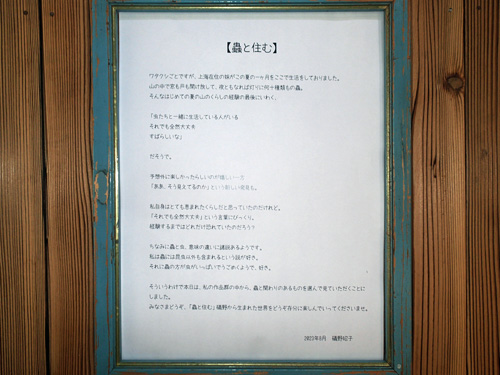 【蟲と住む】
ワタクシごとですが、上海在住の妹がこの夏の一ヶ月をここで生活をしておりました。
山の中で窓も戸も開け放して、夜ともなれば灯りに何十種類もの蟲。
そんなはじめての夏の山のくらしの経験の最後にいわく、
「虫たちと一緒に生活している人がいる
それでも全然大丈夫
すばらしいな」
だそうで。
予想外に楽しかったらしいのが嬉しい一方
「ああ、そう見えてるのか」という新しい発見も。
私自身はとても恵まれたくらしだと思っていたのだけれど。
「それでも全然大丈夫」という言葉にびっくり。
経験するまではどれだけ恐れていたのだろう?
ちなみに蟲と虫、意味の違いに諸説あるようです。
私は蟲には昆虫以外も含まれるという話が好き。
それに蟲の方が虫がいっぱいでうごめくようで、好き。
そういうわけで本日は、私の作品群の中から、蟲と関わりのあるものを選んで見ていただくことに
しました。
みなさまどうぞ、「蟲と住む」磯野から生まれた世界をどうぞ存分に楽しんでいってくださいませ。
2023年8月 磯野昭子